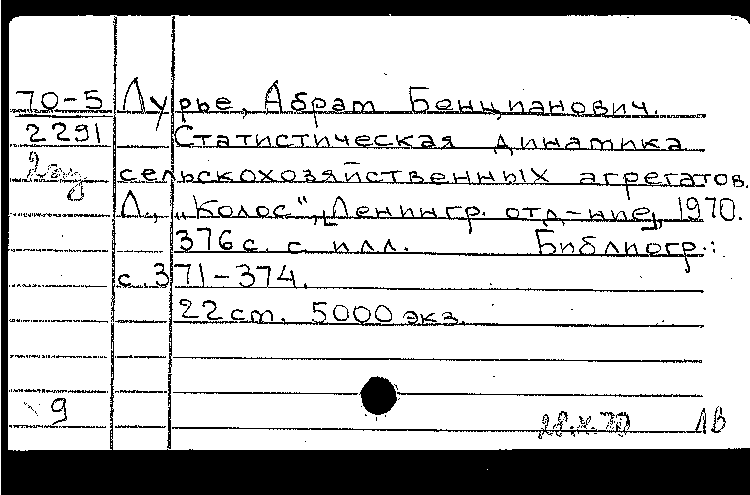 70-5 Лурье, Абрам Бенцианович.
2291 Статистическая динамика
2 экз сельскохозяйственных агрегатов.
Л., „Колос", [Ленингр. отд-ние], 1970.
376 с. с илл. Библиогр.:
с. 371-374.
22 см. 5000 экз.
9 28.X.70 ЛВ